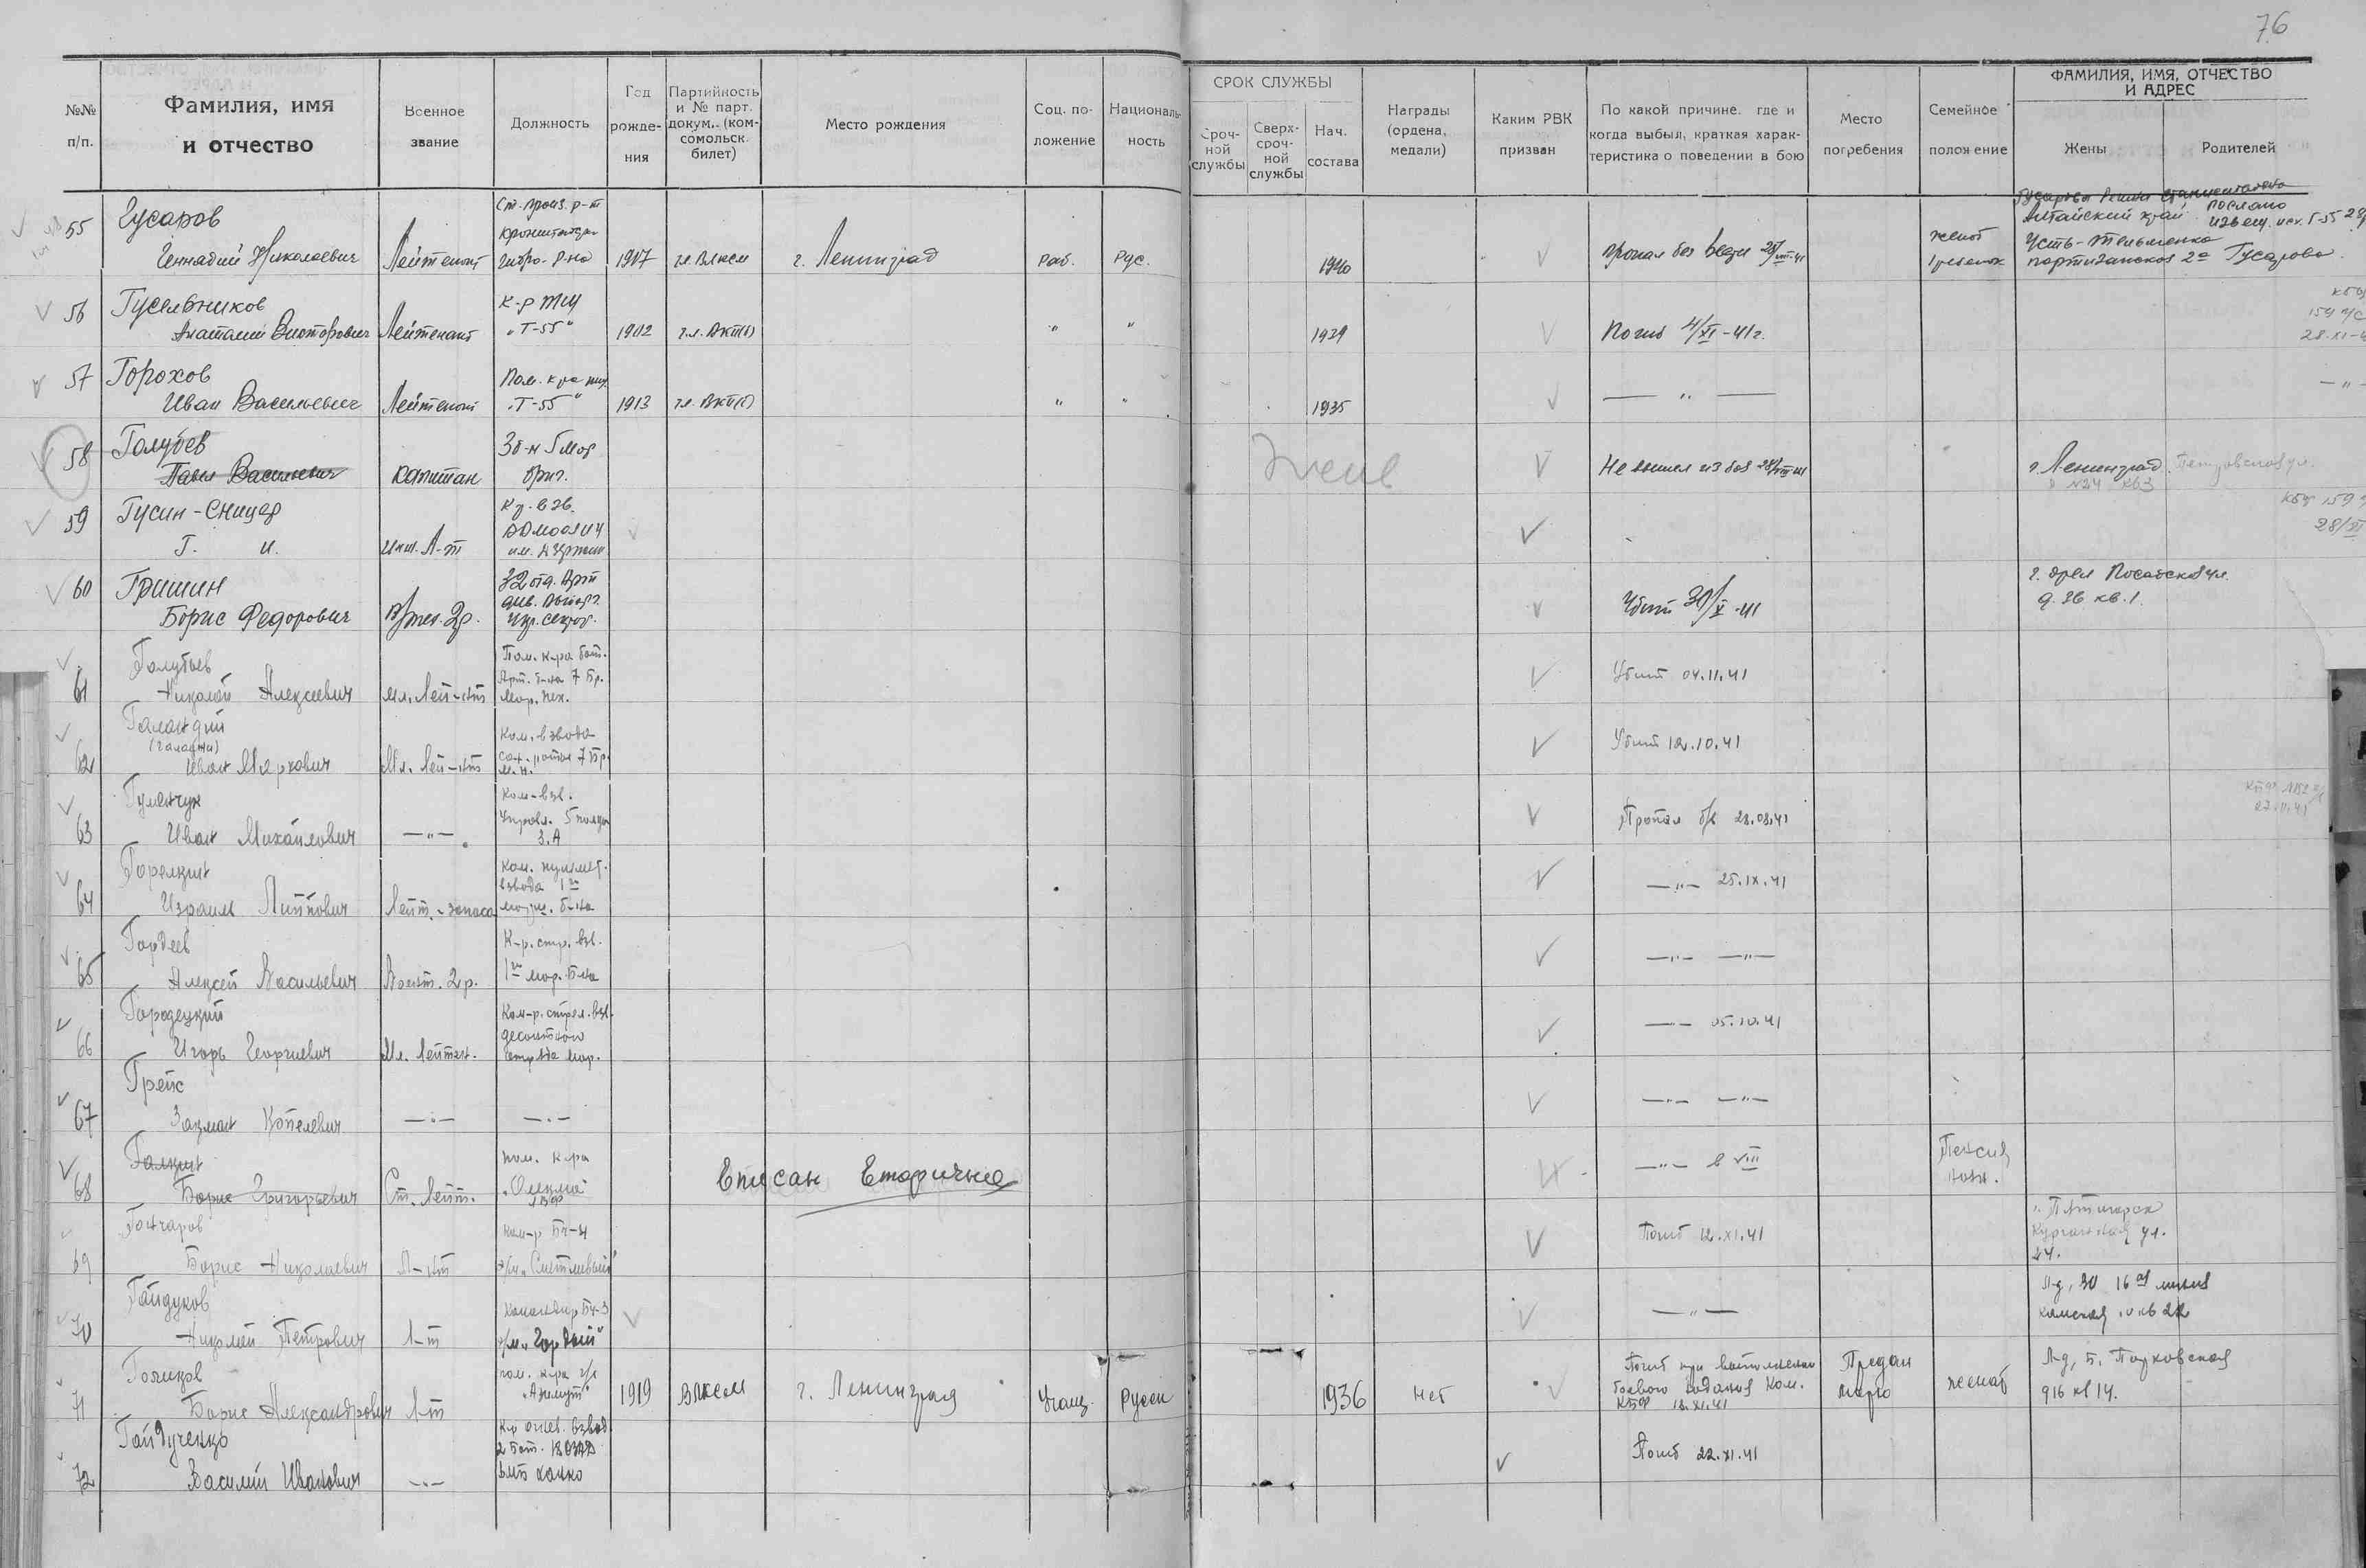 76
№№ п/п.
Фамилия, имя и отчество
Военное звание
Должность
Год рожде-ния
Партийность и № парт. докум. (ком-сомольск. билет)
Место рождения
Соц. по-ложение
Националь-ность
СРОК СЛУЖБЫ
Сроч-ной службы
Сверх-сроч-ной службы
Нач. состава
Награды (ордена, медали)
Каким РВК призван
По какой причине, где и когда выбыл, краткая харак-теристика о поведении в бою
Место погребения
Семейное положение
ФАМИЛИЯ, ИМЯ, ОТЧЕСТВО И АДРЕС
Жены
Родителей
55 Гусаров
Геннадий Николаевич Лейтенант Гидро. р-на 1917 чл. ВЛКСМ г. Ленинград раб. Рус. 1940 Пропал без вести 28/VIII-41 женат 1 ребенок
Алтайский край
Усть-Тальменка
партизанская 2а Гусарова
послано извещ. исх. Г-55
56 Гусельников
Анатолий Викторович Лейтенант к-р ТЩ "Т-55" 1912 чл. ВКП(б) " " 1939 Погиб 4/XI-41г.
28.XI-
57 Горохов
Иван Васильевич Лейтенант Пом. к-ра "Т-55" 1913 чл. ВКП(б) " " 1935 — " —
58 Голубев
Павел Васильевич капитан 3 б-н 5 мор бриг. Жив Не вышел из боя 28/VIII-41 г. Ленинград Петровская ул. №24 кв 3
59 Гусин-Сницар
Г. И. инж. Л-т
28/XI
60 Гришин
Борис Федорович В/тех. 2р. 32 отд. Арт. див. Выборг. укр. сектор. Убит 30/X-41 г. Орел Посадская ул.
д. 36 кв. 1.
61 Голубьев
Николай Алексеевич мл. Лей-нт Пом. к-ра бат. Арт. б-на 7 Бр. Мор. пех. Убит 04.11.41
62 Галандий
(Галаджи)
Иван Маркович Мл. Лей-нт Ком. взвода сап. роты 7 Бр. М.П. Убит 12.10.41
63 Гуменчук
Иван Михайлович —"— Ком-взв. Управл. 5 полка З.А Пропал б/в 28.08.41
27.11.41
64 Горелкин
Израиль Лейт. запаса Ком. пулемет. взвода 1го мор. б-на —"— 25.IX.41
65 Гордеев
Алексей Васильевич Воент. 2р. К-р. стр. взв. 1го мор. Б-на —"— —"—
66 Городецкий
Игорь Георгиевич Мл. Лейтен. Ком-р. стрел. взв. десантного отряда мор. —"— 05.10.41
67 Грейс
Залман Копелевич —"— —"— —"— —"—
68 Галкин
Борис Григорьевич Ст. Лейт. пом. к-ра Вписан вторично —"— в VIII Пенсия
69 Гончаров
Борис Николаевич Л-нт Ком-р БЧ-4 э/м "Сметливый" Погиб 12.XI.41 г. Пятигорск
Курганная ул.
24.
70 Гайдуков
Николай Петрович Л-т Командир БЧ-3 э/м "Гордый" —"— Л-д, ВО 16ая линия
кв 22
71 Голиков
Борис Александрович Л-т пом. к-ра г/с "Азимут" 1919 ВЛКСМ г. Ленинград Учащ. Русск 1936 нет Погиб при выполнении боевого задания Ком. КБФ 12.XI.41 Предан морю женат Л-д, Б. Пушкарская
д16 кв 14.
72 Гайдученко
Василий Иванович —"— К-р огнев. взвод. 2 бат. ВМБ Ханко Погиб 22.XI.41